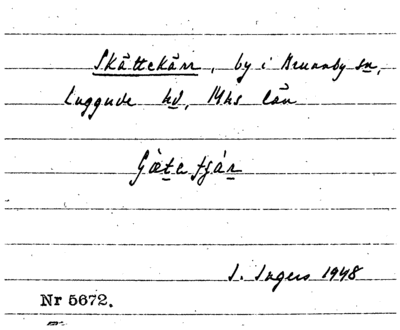 Skättekärr, by i Brunnby sn,
Luggude hd, Mhs län
I. Ingers 1948
Nr 5672.